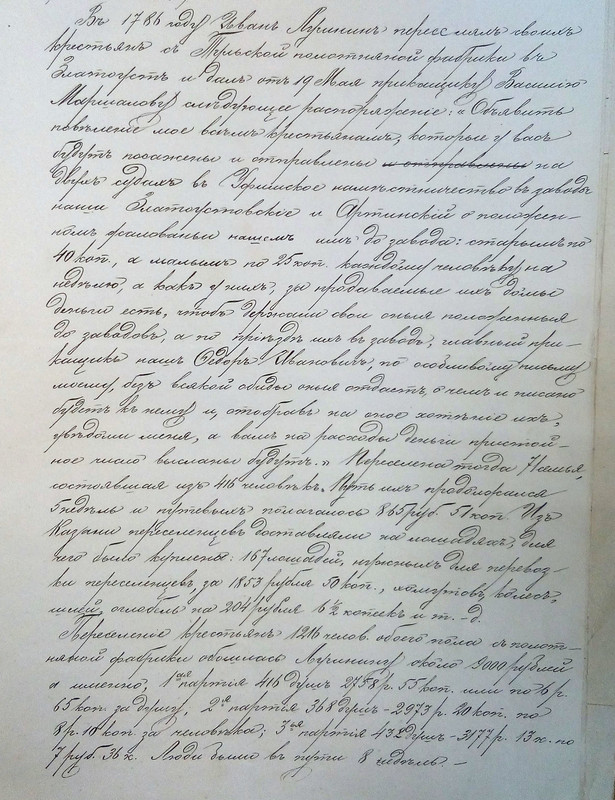 Въ 1786 году Иванъ Лугининъ переселялъ своихъ
крестьянъ съ Тульской полотняной фабрики въ
Златоустъ и далъ отъ 19 Мая прикащику Василію
Маршалову слѣдующее распоряженіе: „Объявить
повѣленіе мое всѣмъ крестьянамъ, которые у васъ
будутъ посажены и отправлены и отправлены на
двухъ судахъ въ Уфимское намѣстничество въ заводы
наши Златоустовскіе и Артинскій о положен-
номъ жалованьи нашемъ имъ до завода: старымъ по
40 коп., а малымъ по 25 коп. каждому человѣку на
недѣлю, а какъ у нихъ, за продаваемые ихъ домы
деньги есть, чтобъ держали свои оныя положенныя
до заводовъ, а по пріѣздѣ ихъ въ заводъ, главный при-
кащикъ нашъ Ѳедоръ Ивановичъ, по особливому письму
моему, безъ всякой обиды оныя отдастъ, о чемъ и писано
будетъ къ нему и, отобравъ на оное хотѣніе ихъ,
увѣдоми меня, а вамъ на расходы деньги пристой-
ное число высланы будутъ.“ Переселена тогда 71 семья,
состоявшая изъ 416 человѣкъ. Путь ихъ продолжался
5 недѣль и путевыхъ полагалось 865 руб. 51 коп. Изъ
Казани переселенцевъ доставляли на лошадяхъ, для
чего было куплено: 167 лошадей, нужныхъ для перевоз-
ки переселенцевъ, за 1853 рубля 50 коп., хомутовъ, колесъ,
шлей, оглобель на 204 рубля 6½ копѣекъ и т. д.
Переселеніе крестьянъ 1216 челов. обоего пола съ полот-
няной фабрики обошлось Лугинину около 9000 рублей
а именно, 1ая партія 416 душъ 2758 р. 55 коп. или по 6 р.
65 коп. за душу, 2я партія 368 душъ – 2973 р. 20 коп. по
8 р. 10 коп. за человѣка; 3я партія 432 душъ – 3177 р. 13 к. по
7 руб. 36 к. Люди были въ пути 8 недѣль. –